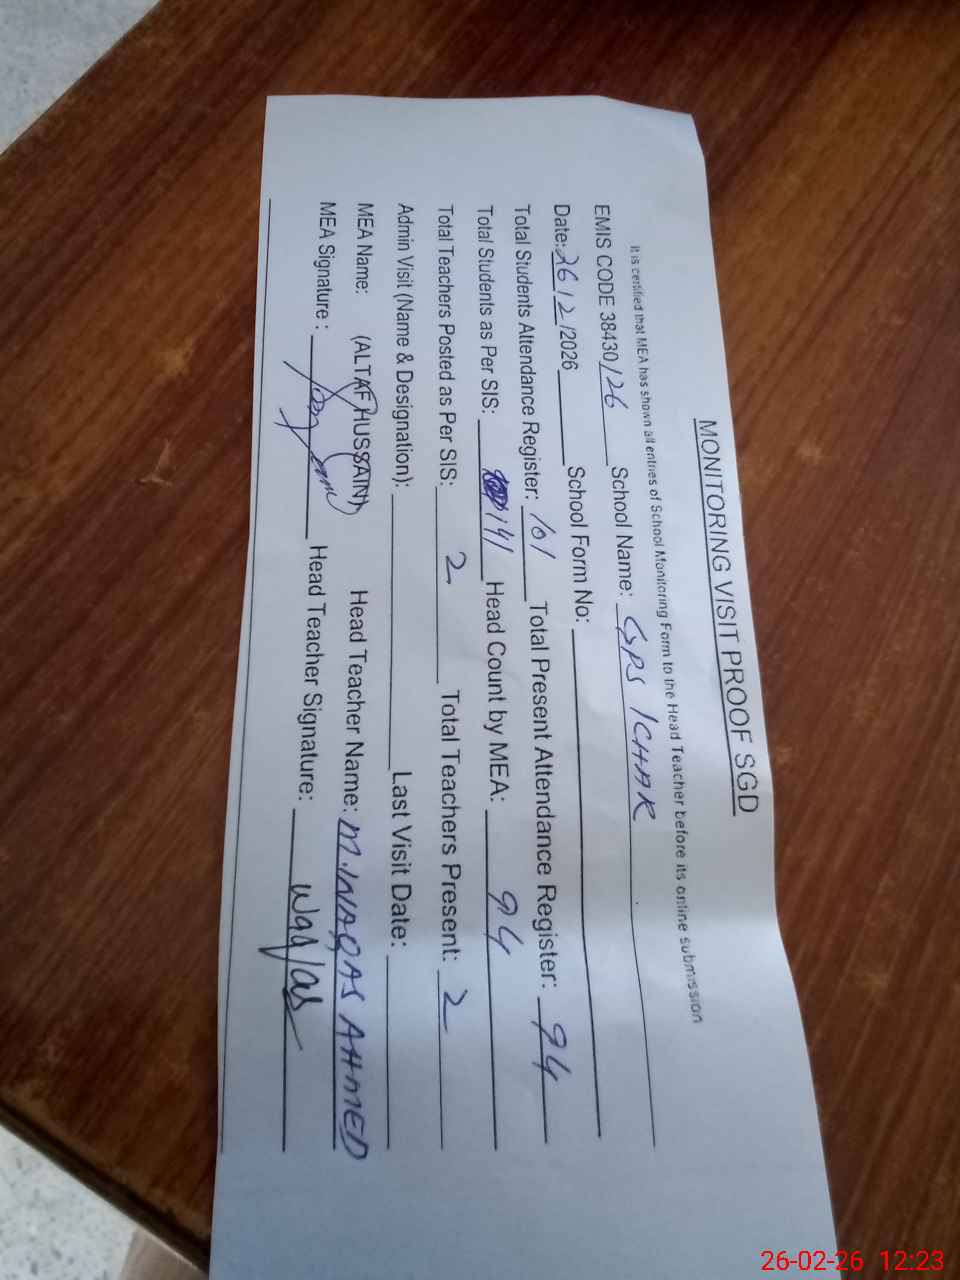 MONITORING VISIT PROOF SGD
It is certified that MEA has shown all entries of School Monitoring Form to the Head Teacher before its online submission
EMIS CODE 38430126 School Name: GPS ICHAR
Date: 26/2/2026 School Form No:
Total Students Attendance Register: 101 Total Present Attendance Register: 94
Total Students as Per SIS: 141 Head Count by MEA: 94
Total Teachers Posted as Per SIS: 2 Total Teachers Present: 2
Admin Visit (Name & Designation): Last Visit Date:
MEA Name: (ALTAF HUSSAIN) Head Teacher Name: M.WAQAS AHMED
MEA Signature : Head Teacher Signature: Waqas
26-02-26 12:23